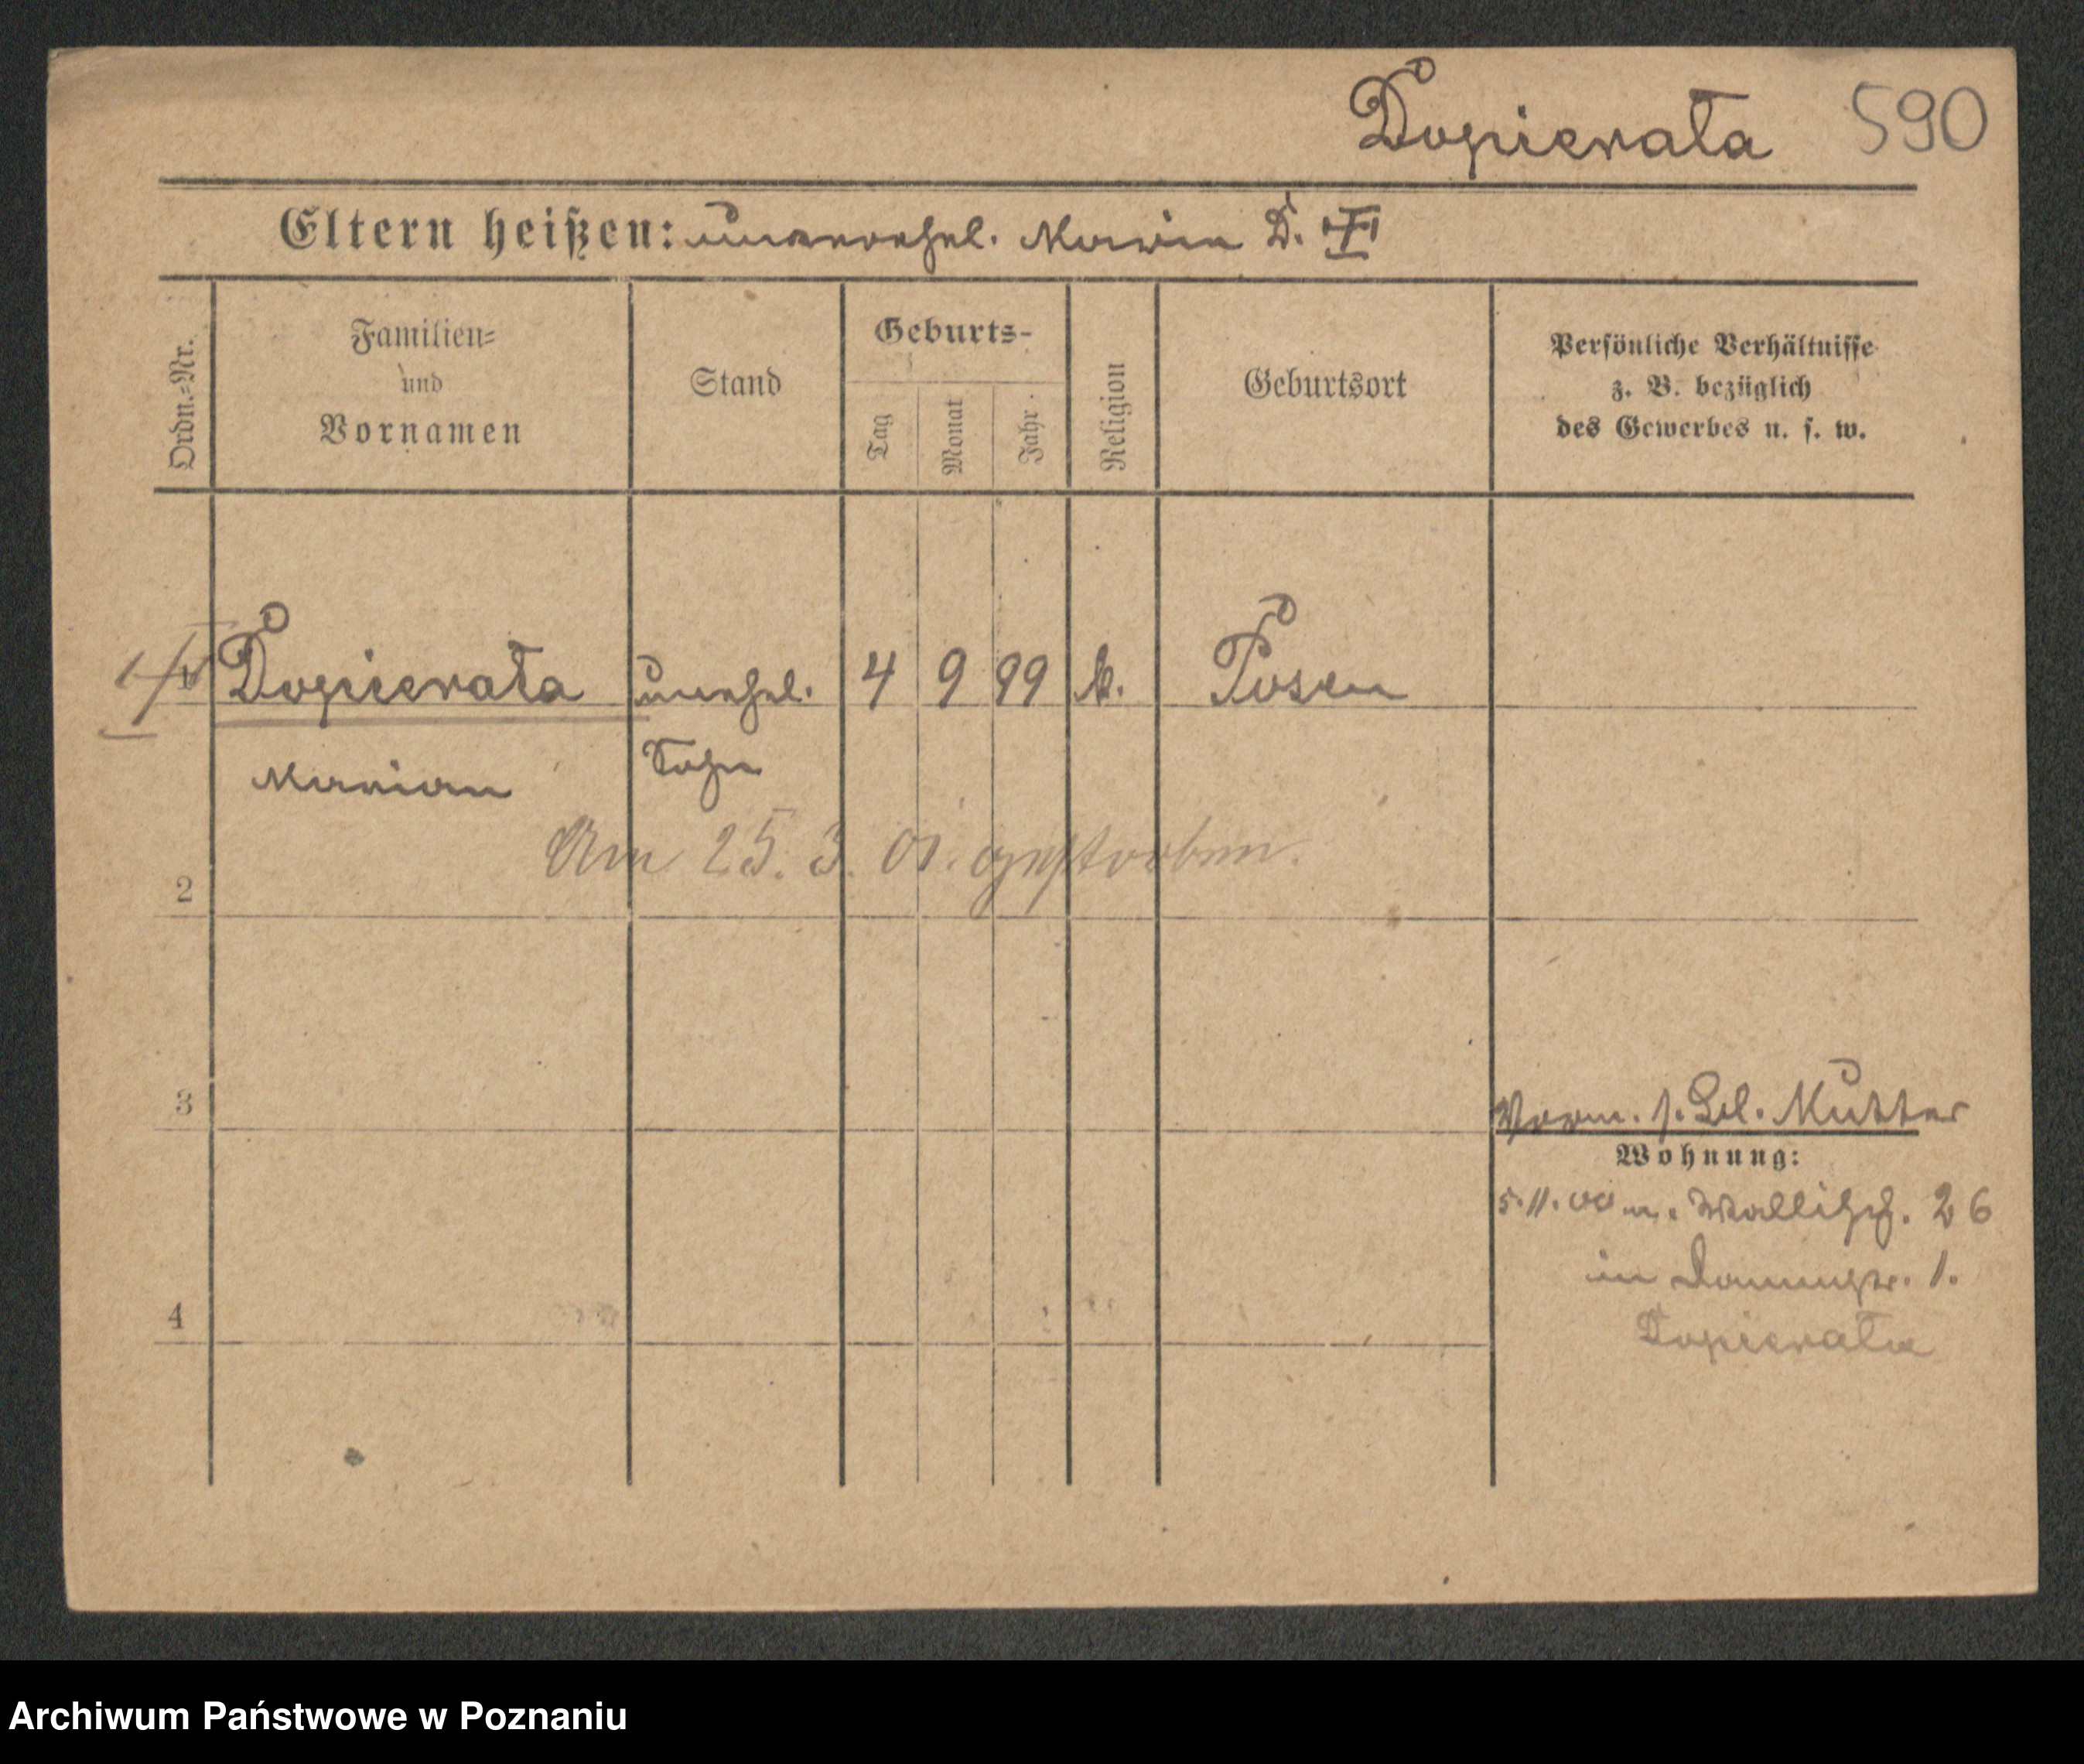 Dopierata 590
Eltern heißen: unverehel. Maria D. I
Ordn.-Nr.
Familien-
und
Vornamen
Stand
Geburts-
Tag
Monat
Jahr
Religion
Geburtsort
Persönliche Verhältnisse
z. B. bezüglich
des Gewerbes u. s. w.
1 Dopierata unehel. 4 9 99 k. Posen
Marian Sohn
Am 25. 3. 01. gestorben.
2
3
Vorm. s. Bl. Mutter
Wohnung:
5.11.00 n. Wallisch. 26
in Dammstr. 1.
Dopierata
4
Archiwum Państwowe w Poznaniu